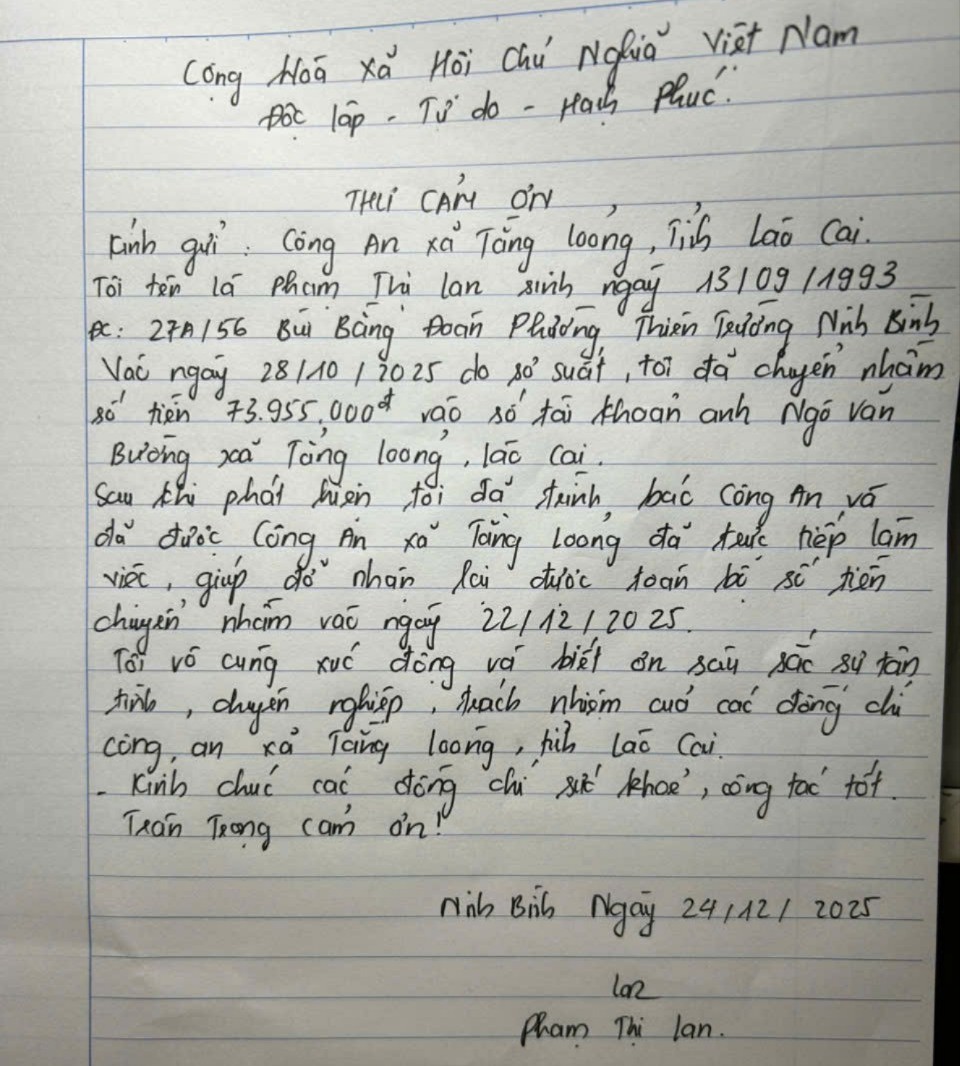 Cộng Hoà Xã Hội Chủ Nghĩa Việt Nam
Độc lập - Tự do - Hạnh Phúc.
THƯ CẢM ƠN
Kính gửi : Công An xã Tằng loỏng, Tỉnh Lào Cai.
Tôi tên là Phạm Thị lan sinh ngày 13/09/1993
ĐC: 27A/56 Bùi Bằng Đoàn Phường Thiên Trường Ninh Bình
Vào ngày 28/10/2025 do sơ suất, tôi đã chuyển nhầm
số tiền 73.955.000đ vào số tài khoản anh Ngô Văn
Bường xã Tằng loỏng, lào Cai.
Sau khi phát hiện tôi đã trình báo Công An và
đã được Công An xã Tằng Loỏng đã trực tiếp làm
việc, giúp đỡ nhận lại được toàn bộ số tiền
chuyển nhầm vào ngày 22/12/2025.
Tôi vô cùng xúc động và biết ơn sâu sắc sự tận
tình, chuyên nghiệp, trách nhiệm cuả các đồng chí
công, an xã Tằng loỏng, tỉnh Lào Cai.
- Kính chúc các đồng chí sức khoẻ, công tác tốt.
Trân Trọng cảm ơn!
Ninh Bình Ngày 24/12/2025
lan
Phạm Thị lan.